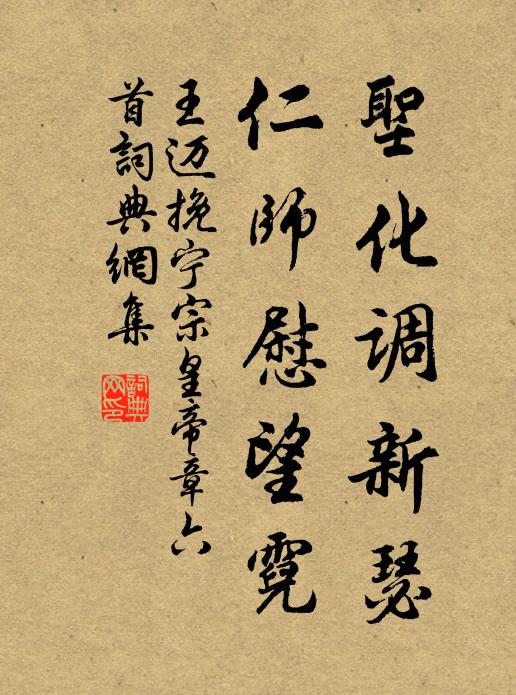 聖化調新瑟
仁師慰望霓
王迈挽宁宗皇帝章六
首詞典網集
詞典
网印